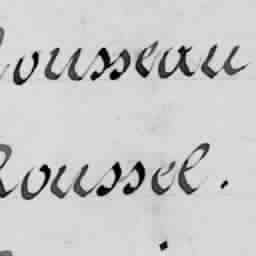 Rousseau
Roussel.